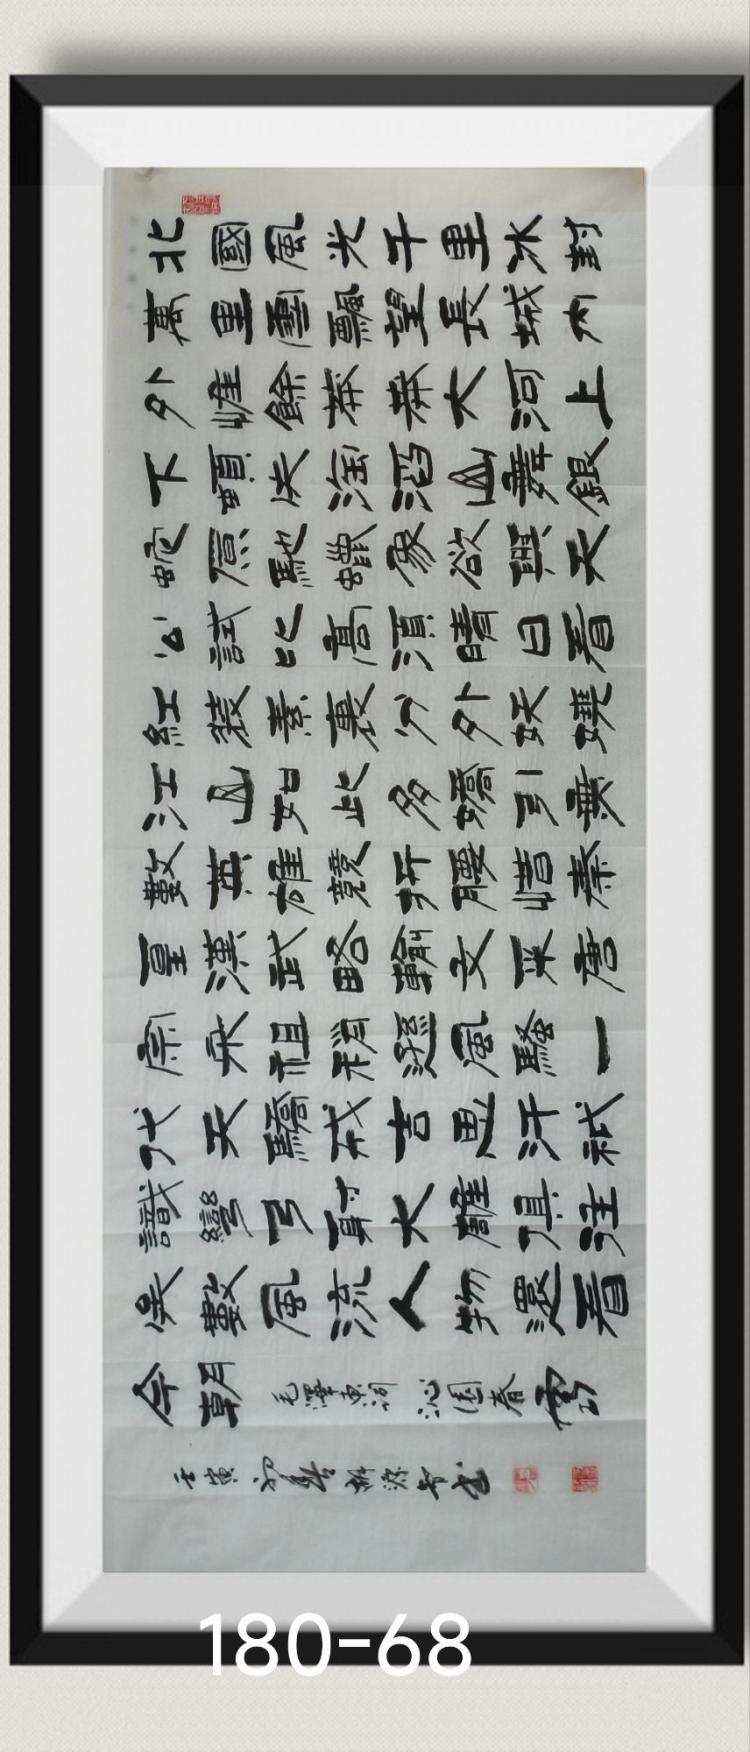 北國風光千里冰封
萬里雪飄望長城内
外惟餘莽莽大河上
下頓失滔滔山舞銀
蛇原馳蠟象欲與天
公試比高須晴日看
紅裝素裹分外妖嬈
江山如此多嬌引無
數英雄競折腰惜秦
皇漢武略輸文采唐
宗宋祖稍遜風騷一
代天驕成吉思汗祇
識彎弓射大雕俱往
矣數風流人物還看
今朝 毛澤東词 沁园春 雪
壬寅 書
180-68